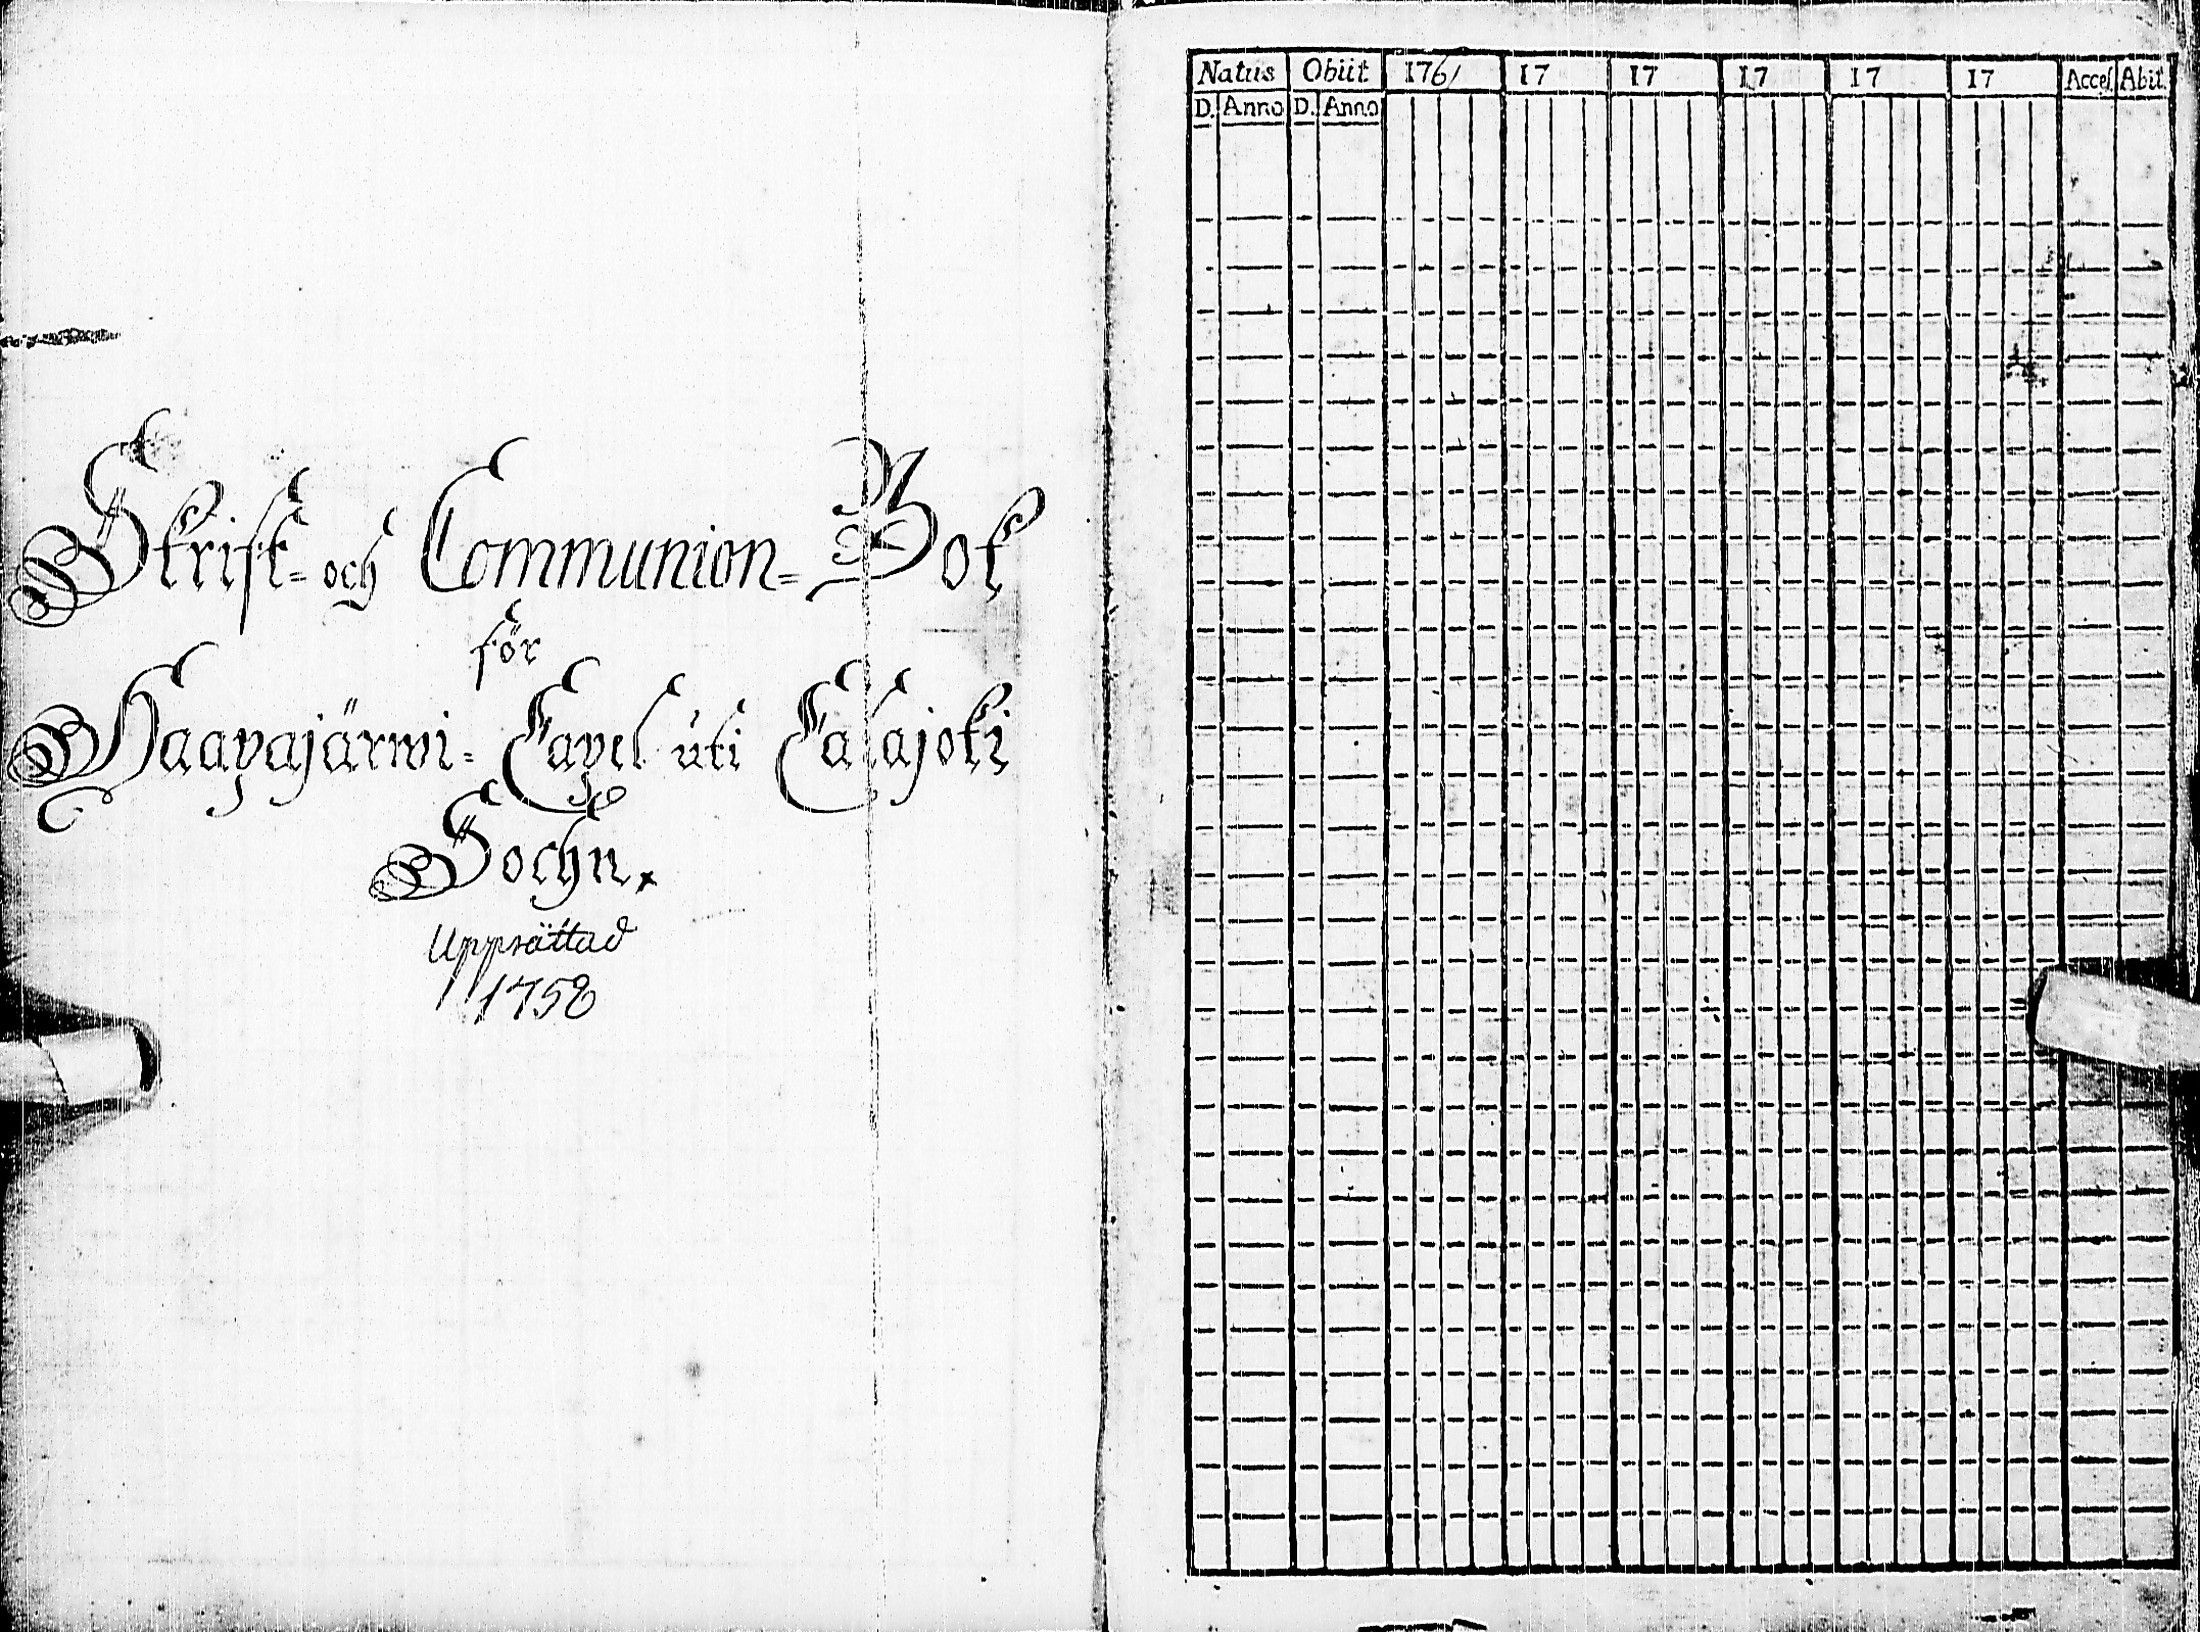 Skrift= och Communion= Bok
för
Haapajärwi= Capel uti Calajoki
Sochn.
Upprättad
1758
Natus Obiit 1761 17 17 17 17 17 Acces. Abit.
D. Anno D. Anno